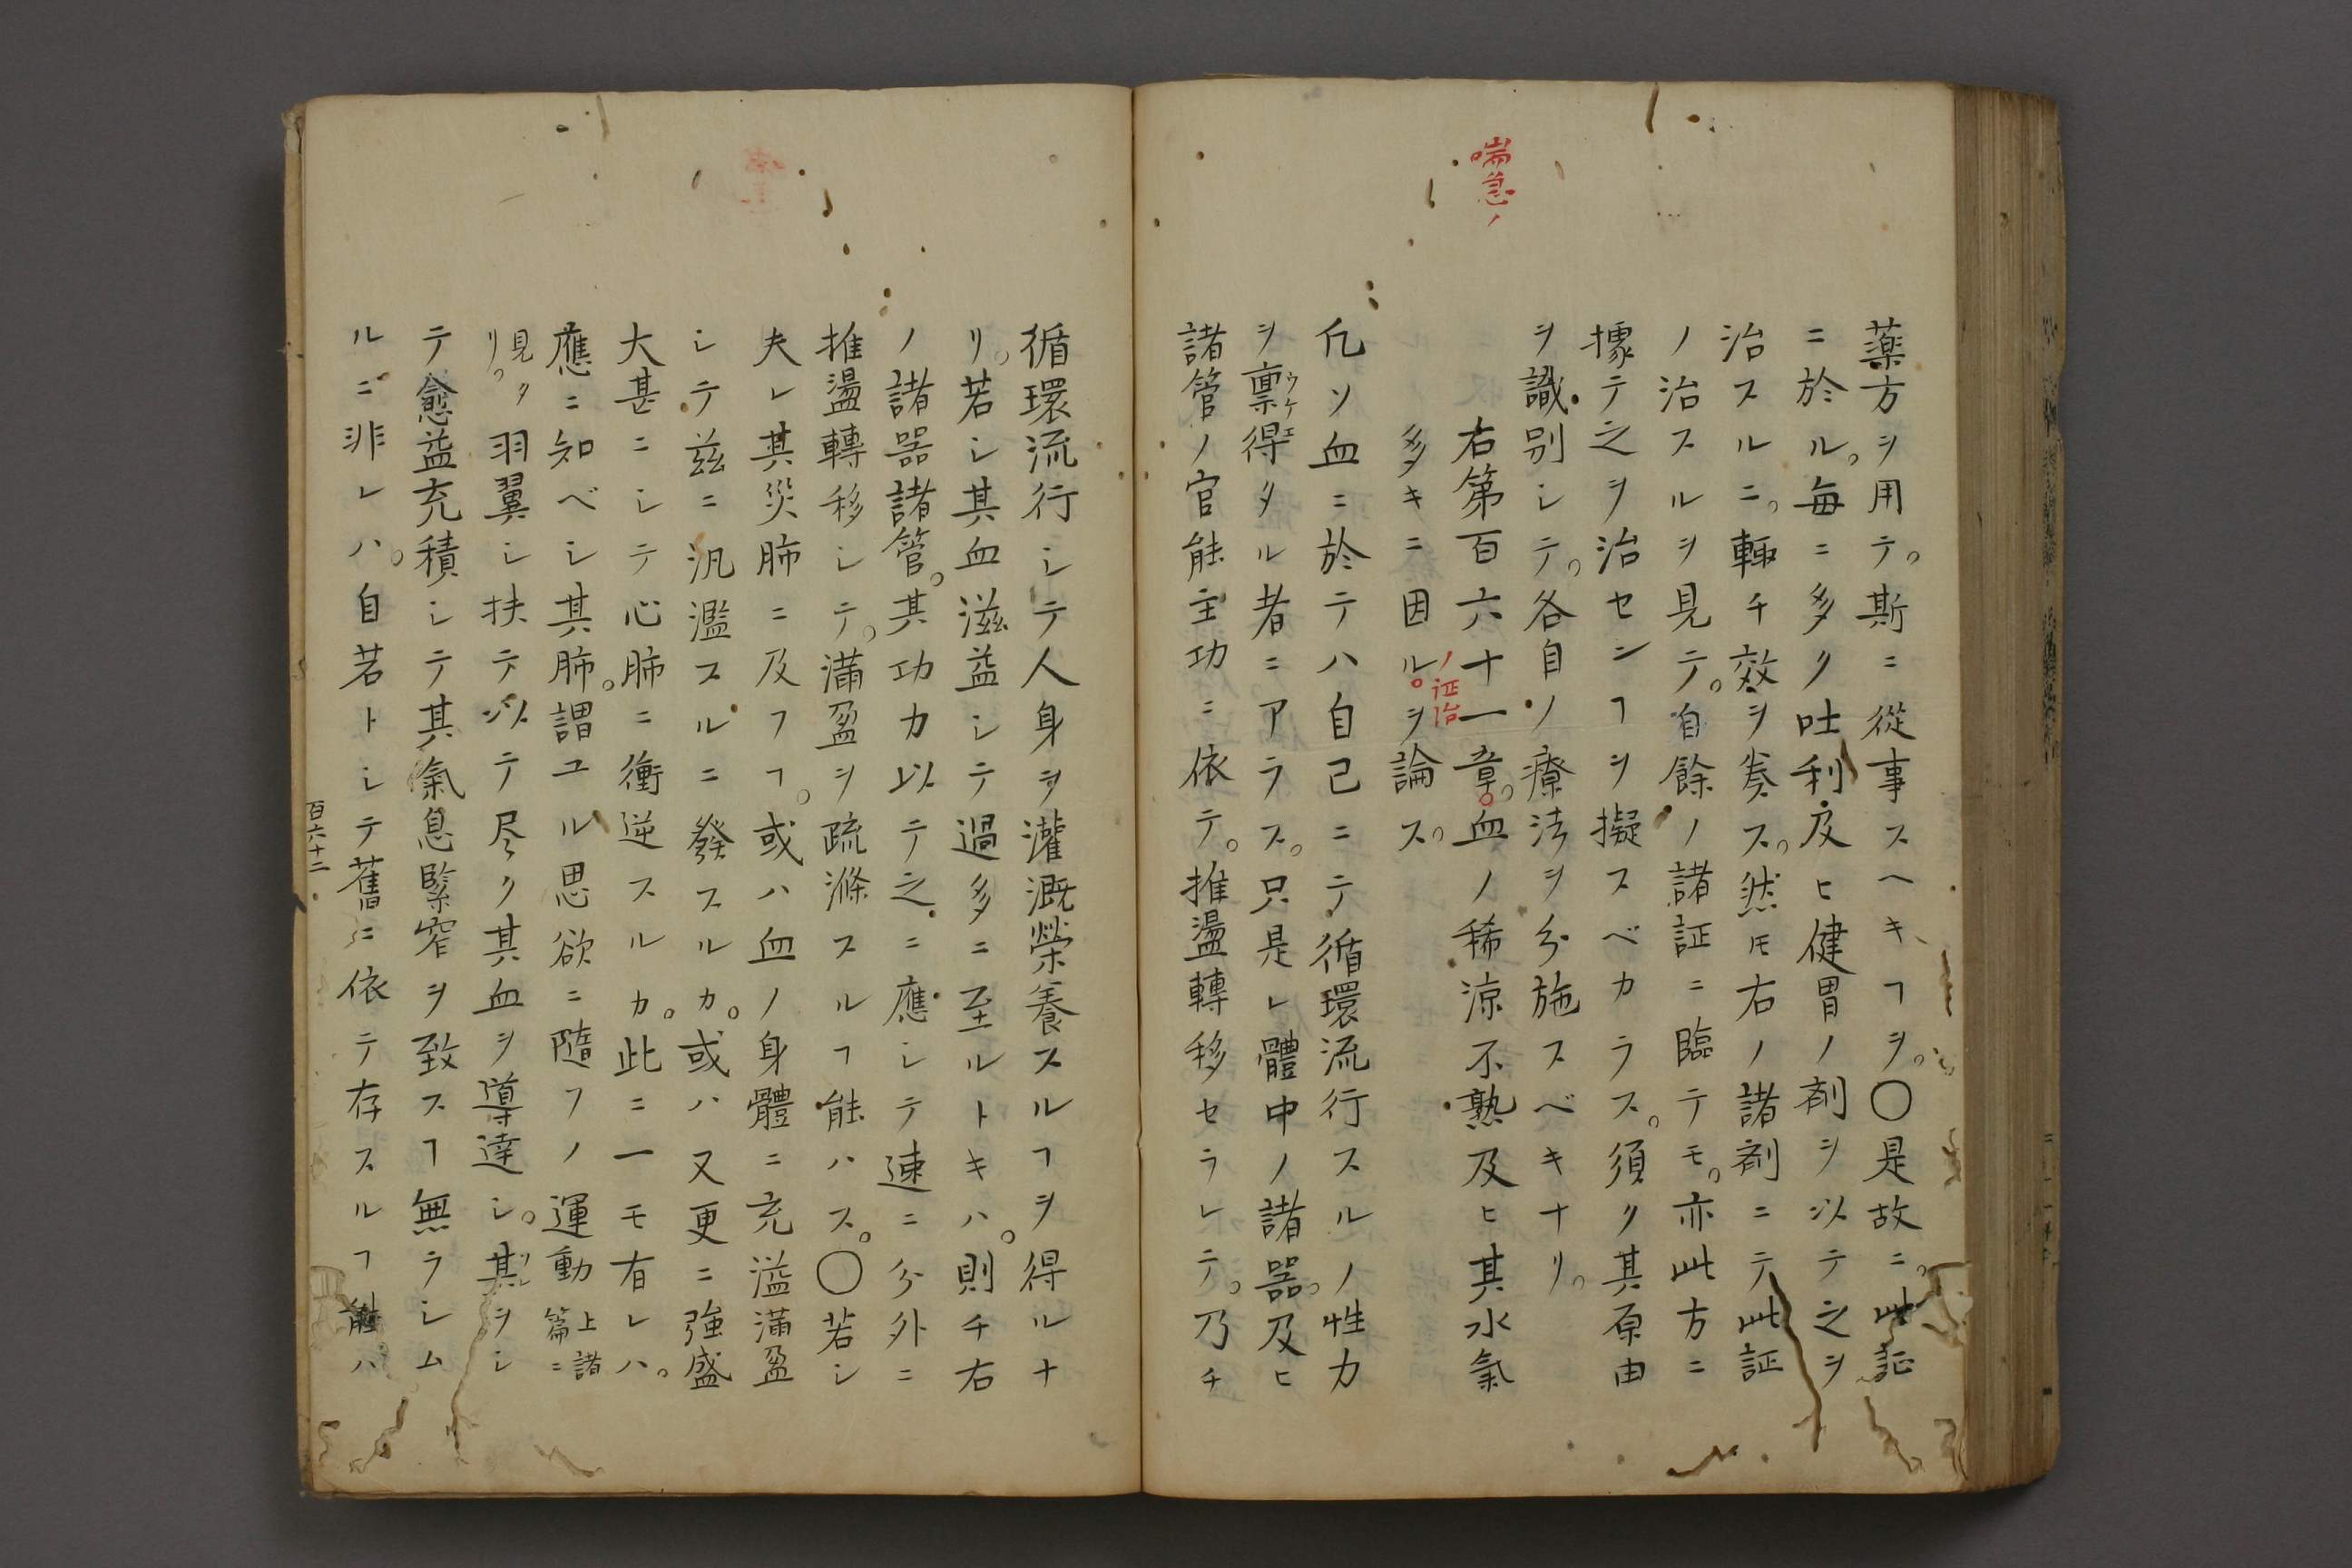 喘急ノ
薬方ヲ用テ。斯ニ從事スヘキヿヲ。〇是故ニ。此証
ニ於ル。毎ニ多ク吐利及ヒ健胃ノ剤ヲ以テ之ヲ
治スルニ。輙チ效ヲ奏ス。然モ右ノ諸剤ニテ此証
ノ治スルヲ見テ。自餘ノ諸証ニ臨テモ。亦此方ニ
據テ之ヲ治センヿヲ擬スベカラス。須ク其原由
ヲ識別シテ。各自ノ療法ヲ分施スベキナリ。
右第百六十一章。血ノ稀涼不熟及ヒ其水氣
多キニ因ル。ノ証治ヲ論ス。
凢ソ血ニ於テハ自己ニテ循環流行スルノ性力
ヲ禀得ウケエタル者ニアラス。只是レ體中ノ諸器。及ヒ
諸管ノ官能主功ニ依テ。推盪轉移セラレテ。乃チ
循環流行シテ人身ヲ灌溉榮養スルヿヲ得ルナ
リ。若シ其血滋益シテ過多ニ至ルトキハ。則チ右
ノ諸器諸管。其功力以テ之ニ應シテ速ニ分外ニ
推盪轉移シテ。滿盈ヲ疏滌スルヿ能ハス。〇若シ
夫レ其災肺ニ及フヿ。或ハ血ノ身體ニ充溢滿盈
シテ茲ニ汎濫スルニ發スルカ。或ハ又更ニ強盛
大甚ニシテ心肺ニ衝逆スルカ。此ニ一モ有レハ。
應ニ知ベシ其肺。謂ユル思欲ニ隨フノ運動上諸篇ニ
見タリ。羽翼シ扶テ以テ尽ク其血ヲ導達シ。其ソレヲシ
テ愈益充積シテ其氣息緊窄ヲ致スヿ無ラシム
ルニ非レハ。自若トシテ舊ニ依テ存スルヿ能ハ
百六十二